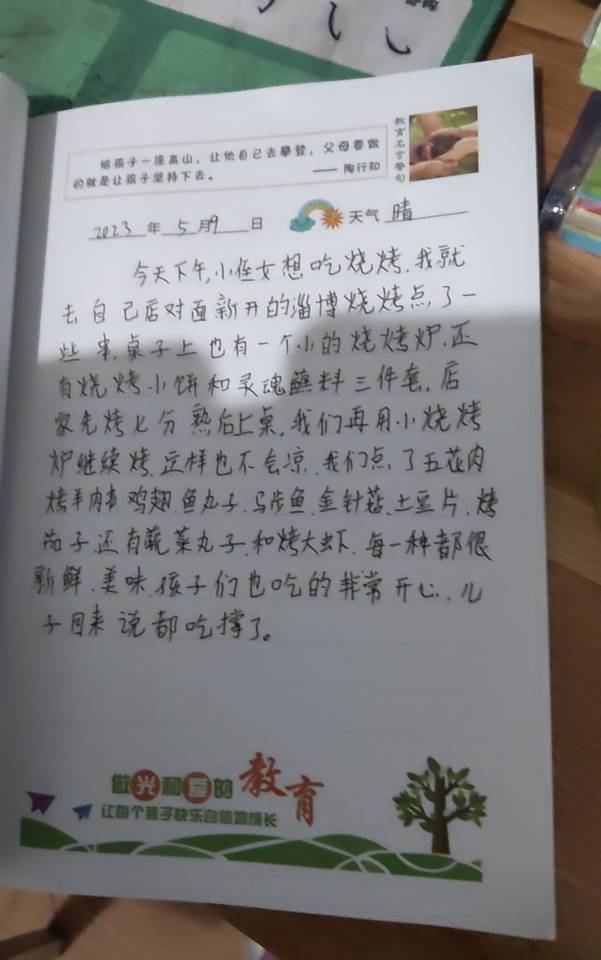 给孩子一座高山，让他自己去攀登，父母要做
的就是让孩子坚持下去。
—— 陶行知
教育名言警句
2023 年 5 月 9 日 天气 晴
今天下午,小侄女想吃烧烤,我就
去自己店对面新开的淄博烧烤点了一
些串,桌子上也有一个小的烧烤炉,还
有烧烤小饼和灵魂蘸料三件套,店
家先烤七分熟后上桌,我们再用小烧烤
炉继续烤,这样也不会凉,我们点了五花肉
烤羊肉串,鸡翅,鱼丸子,马步鱼,金针菇,土豆片,烤
茄子,还有蔬菜丸子,和烤大虾,每一种都很
新鲜,美味,孩子们也吃的非常开心,儿
子回来说都吃撑了。
做光和爱的教育
让每个孩子快乐自信地成长